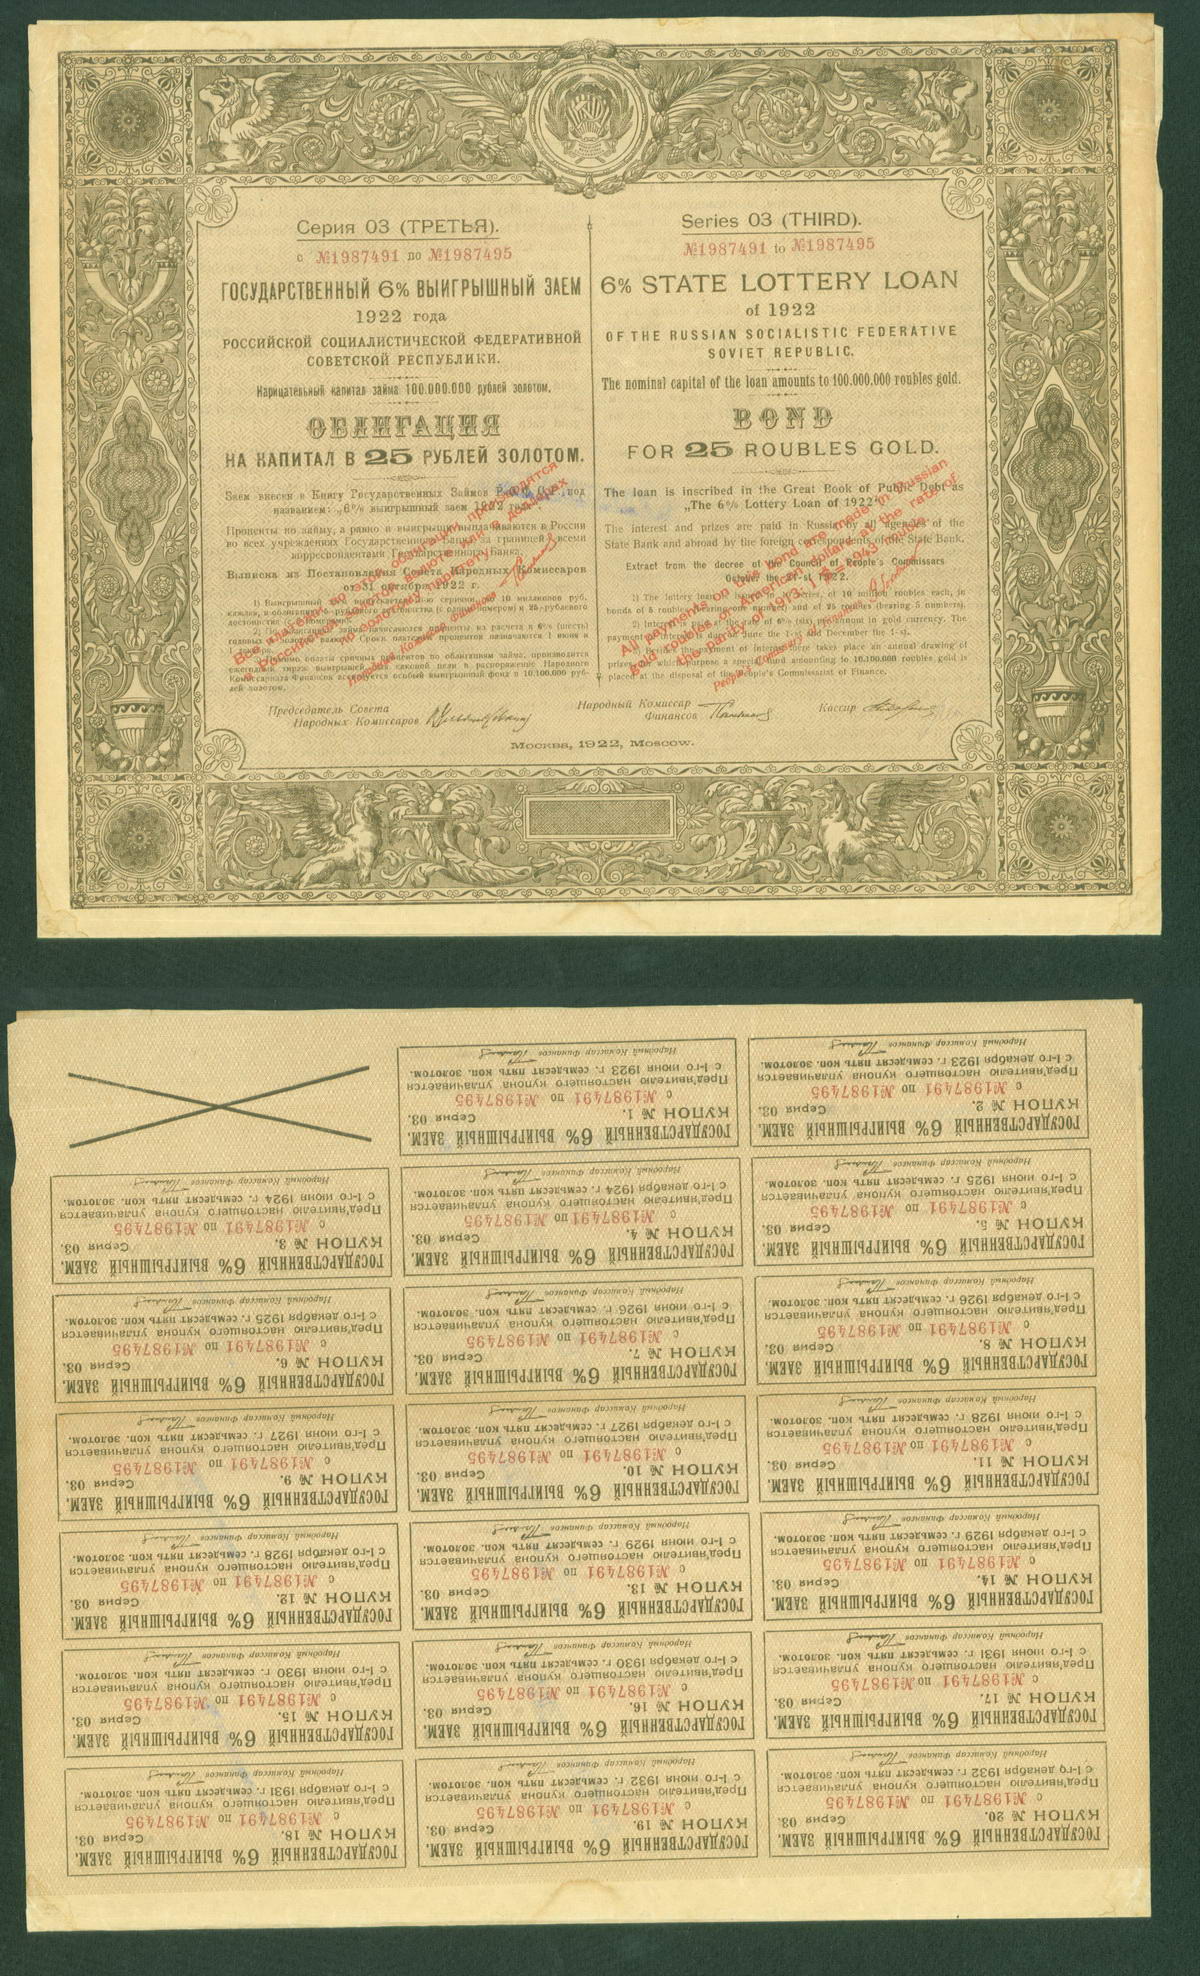 Серия 03 (ТРЕТЬЯ).
с №1987491 по №1987495
ГОСУДАРСТВЕННЫЙ 6% ВЫИГРЫШНЫЙ ЗАЕМ
1922 года
РОССИЙСКОЙ СОЦИАЛИСТИЧЕСКОЙ ФЕДЕРАТИВНОЙ
СОВЕТСКОЙ РЕСПУБЛИКИ.
Нарицательный капитал займа 100.000.000 рублей золотом.
ОБЛИГАЦИЯ
НА КАПИТАЛ В 25 РУБЛЕЙ ЗОЛОТОМ.
Заем внесен в Книгу Государственных Займов Р.С.Ф.С.Р. под
названием: „6% выигрышный заем 1922 года".
Проценты по займу, а равно и выигрыши выплачиваются в России
во всех учреждениях Государственного Банка, за границей всеми
корреспондентами Государственного Банка.
Выписка из Постановления Совета Народных Комиссаров
от 31 октября 1922 г.
Series 03 (THIRD).
№1987491 to №1987495
6% STATE LOTTERY LOAN
of 1922
OF THE RUSSIAN SOCIALISTIC FEDERATIVE
SOVIET REPUBLIC.
The nominal capital of the loan amounts to 100.000,000 roubles gold.
BOND
FOR 25 ROUBLES GOLD.
The loan is inscribed in the Great Book of Public Debt as
„The 6% Lottery Loan of 1922".
The interest and prizes are paid in Russia by all agencies of the
State Bank and abroad by the foreign correspondents of the State Bank.
Extract from the decree of the Council of People's Commissars
October the 31-st 1922.
1) The lottery loan is issued in series, of 10 million roubles each, in
bonds of 5 roubles (bearing one number) and of 25 roubles (bearing 5 numbers).
placed at the disposal of the People's Commissariat of Finance.
All payments on this bond are made in Russian
gold roubles or American dollars at the rate of
the parity of 1913: 1 $ = 1,943 rouble
Председатель Совета
Народных Комиссаров
Народный Комиссар
Финансов
Кассир
Москва, 1922, Moscow.
ГОСУДАРСТВЕННЫЙ 6% ВЫИГРЫШНЫЙ ЗАЕМ.
КУПОН № 20. Серия 03.
с №1987491 по №1987495
Пред'явителю настоящего купона уплачивается
с 1-го декабря 1932 г. семьдесят пять коп. золотом.
Народный Комиссар Финансов
ГОСУДАРСТВЕННЫЙ 6% ВЫИГРЫШНЫЙ ЗАЕМ.
КУПОН № 19. Серия 03.
с №1987491 по №1987495
Пред'явителю настоящего купона уплачивается
с 1-го июня 1932 г. семьдесят пять коп. золотом.
Народный Комиссар Финансов
ГОСУДАРСТВЕННЫЙ 6% ВЫИГРЫШНЫЙ ЗАЕМ.
КУПОН № 18. Серия 03.
с №1987491 по №1987495
Пред'явителю настоящего купона уплачивается
с 1-го декабря 1931 г. семьдесят пять коп. золотом.
Народный Комиссар Финансов
ГОСУДАРСТВЕННЫЙ 6% ВЫИГРЫШНЫЙ ЗАЕМ.
КУПОН № 17. Серия 03.
с №1987491 по №1987495
Пред'явителю настоящего купона уплачивается
с 1-го июня 1931 г. семьдесят пять коп. золотом.
Народный Комиссар Финансов
ГОСУДАРСТВЕННЫЙ 6% ВЫИГРЫШНЫЙ ЗАЕМ.
КУПОН № 16. Серия 03.
с №1987491 по №1987495
Пред'явителю настоящего купона уплачивается
с 1-го декабря 1930 г. семьдесят пять коп. золотом.
Народный Комиссар Финансов
ГОСУДАРСТВЕННЫЙ 6% ВЫИГРЫШНЫЙ ЗАЕМ.
КУПОН № 15. Серия 03.
с №1987491 по №1987495
Пред'явителю настоящего купона уплачивается
с 1-го июня 1930 г. семьдесят пять коп. золотом.
Народный Комиссар Финансов
ГОСУДАРСТВЕННЫЙ 6% ВЫИГРЫШНЫЙ ЗАЕМ.
КУПОН № 14. Серия 03.
с №1987491 по №1987495
Пред'явителю настоящего купона уплачивается
с 1-го декабря 1929 г. семьдесят пять коп. золотом.
Народный Комиссар Финансов
ГОСУДАРСТВЕННЫЙ 6% ВЫИГРЫШНЫЙ ЗАЕМ.
КУПОН № 13. Серия 03.
с №1987491 по №1987495
Пред'явителю настоящего купона уплачивается
с 1-го июня 1929 г. семьдесят пять коп. золотом.
Народный Комиссар Финансов
ГОСУДАРСТВЕННЫЙ 6% ВЫИГРЫШНЫЙ ЗАЕМ.
КУПОН № 12. Серия 03.
с №1987491 по №1987495
Пред'явителю настоящего купона уплачивается
с 1-го декабря 1928 г. семьдесят пять коп. золотом.
Народный Комиссар Финансов
ГОСУДАРСТВЕННЫЙ 6% ВЫИГРЫШНЫЙ ЗАЕМ.
КУПОН № 11. Серия 03.
с №1987491 по №1987495
Пред'явителю настоящего купона уплачивается
с 1-го июня 1928 г. семьдесят пять коп. золотом.
Народный Комиссар Финансов
ГОСУДАРСТВЕННЫЙ 6% ВЫИГРЫШНЫЙ ЗАЕМ.
КУПОН № 10. Серия 03.
с №1987491 по №1987495
Пред'явителю настоящего купона уплачивается
с 1-го декабря 1927 г. семьдесят пять коп. золотом.
Народный Комиссар Финансов
ГОСУДАРСТВЕННЫЙ 6% ВЫИГРЫШНЫЙ ЗАЕМ.
КУПОН № 9. Серия 03.
с №1987491 по №1987495
Пред'явителю настоящего купона уплачивается
с 1-го июня 1927 г. семьдесят пять коп. золотом.
Народный Комиссар Финансов
ГОСУДАРСТВЕННЫЙ 6% ВЫИГРЫШНЫЙ ЗАЕМ.
КУПОН № 8. Серия 03.
с №1987491 по №1987495
Пред'явителю настоящего купона уплачивается
с 1-го декабря 1926 г. семьдесят пять коп. золотом.
Народный Комиссар Финансов
ГОСУДАРСТВЕННЫЙ 6% ВЫИГРЫШНЫЙ ЗАЕМ.
КУПОН № 7. Серия 03.
с №1987491 по №1987495
Пред'явителю настоящего купона уплачивается
с 1-го июня 1926 г. семьдесят пять коп. золотом.
Народный Комиссар Финансов
ГОСУДАРСТВЕННЫЙ 6% ВЫИГРЫШНЫЙ ЗАЕМ.
КУПОН № 6. Серия 03.
с №1987491 по №1987495
Пред'явителю настоящего купона уплачивается
с 1-го декабря 1925 г. семьдесят пять коп. золотом.
Народный Комиссар Финансов
ГОСУДАРСТВЕННЫЙ 6% ВЫИГРЫШНЫЙ ЗАЕМ.
КУПОН № 5. Серия 03.
с №1987491 по №1987495
Пред'явителю настоящего купона уплачивается
с 1-го июня 1925 г. семьдесят пять коп. золотом.
Народный Комиссар Финансов
ГОСУДАРСТВЕННЫЙ 6% ВЫИГРЫШНЫЙ ЗАЕМ.
КУПОН № 4. Серия 03.
с №1987491 по №1987495
Пред'явителю настоящего купона уплачивается
с 1-го декабря 1924 г. семьдесят пять коп. золотом.
Народный Комиссар Финансов
ГОСУДАРСТВЕННЫЙ 6% ВЫИГРЫШНЫЙ ЗАЕМ.
КУПОН № 3. Серия 03.
с №1987491 по №1987495
Пред'явителю настоящего купона уплачивается
с 1-го июня 1924 г. семьдесят пять коп. золотом.
Народный Комиссар Финансов
ГОСУДАРСТВЕННЫЙ 6% ВЫИГРЫШНЫЙ ЗАЕМ.
КУПОН № 2. Серия 03.
с №1987491 по №1987495
Пред'явителю настоящего купона уплачивается
с 1-го декабря 1923 г. семьдесят пять коп. золотом.
Народный Комиссар Финансов
ГОСУДАРСТВЕННЫЙ 6% ВЫИГРЫШНЫЙ ЗАЕМ.
КУПОН № 1. Серия 03.
с №1987491 по №1987495
Пред'явителю настоящего купона уплачивается
с 1-го июня 1923 г. семьдесят пять коп. золотом.
Народный Комиссар Финансов